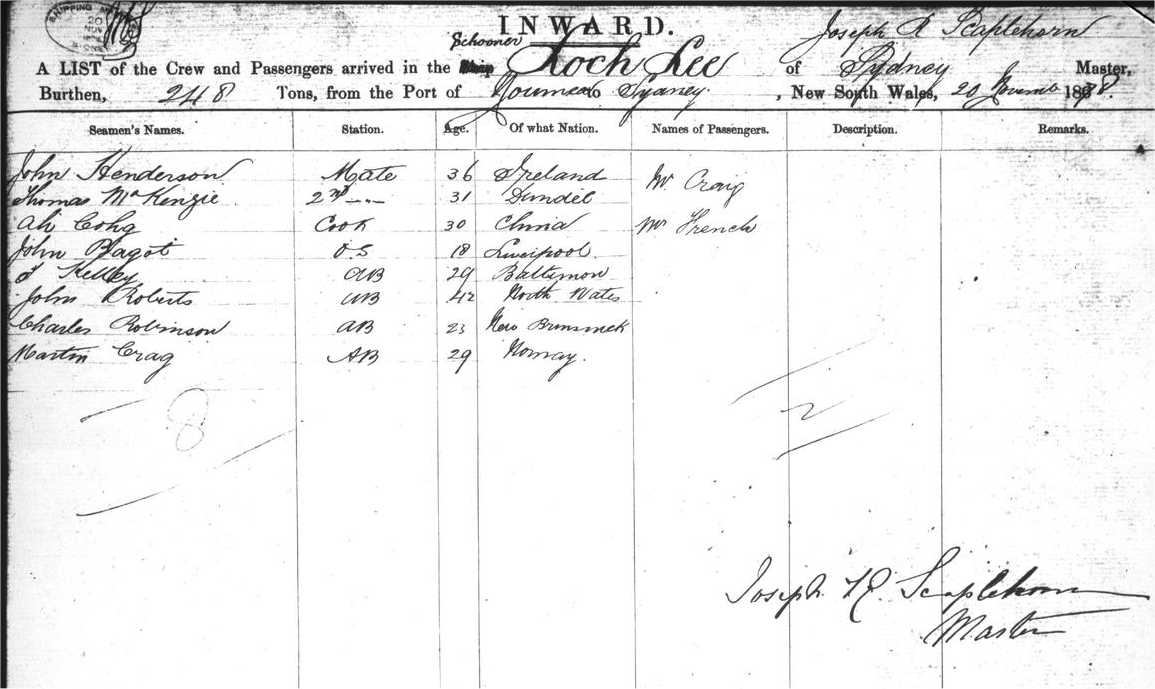 SHIPPING MA
20
NOV
INWARD.
Joseph R Scaplehorn
Schooner
A LIST of the Crew and Passengers arrived in the Ship Loch Lee of Sydney Master,
Burthen, 248 Tons, from the Port of Noumea to Sydney, New South Wales, 20 November 18
Seamen's Names. Station. Age. Of what Nation. Names of Passengers. Description. Remarks.
John Henderson Mate 36 Ireland Mr Craig
Thomas McKenzie 2nd -"- 31 Dundee
Ah Cohg Cook 30 China Mr French
John Bagot O.S 18 Liverpool.
Kelley AB 29 Baltimon
John Roberts AB 42 North Wales
Charles Robinson AB 23 New Brunswick
Martin Crag AB 29 Norway.
8
2
Joseph Scaplehorn
Master